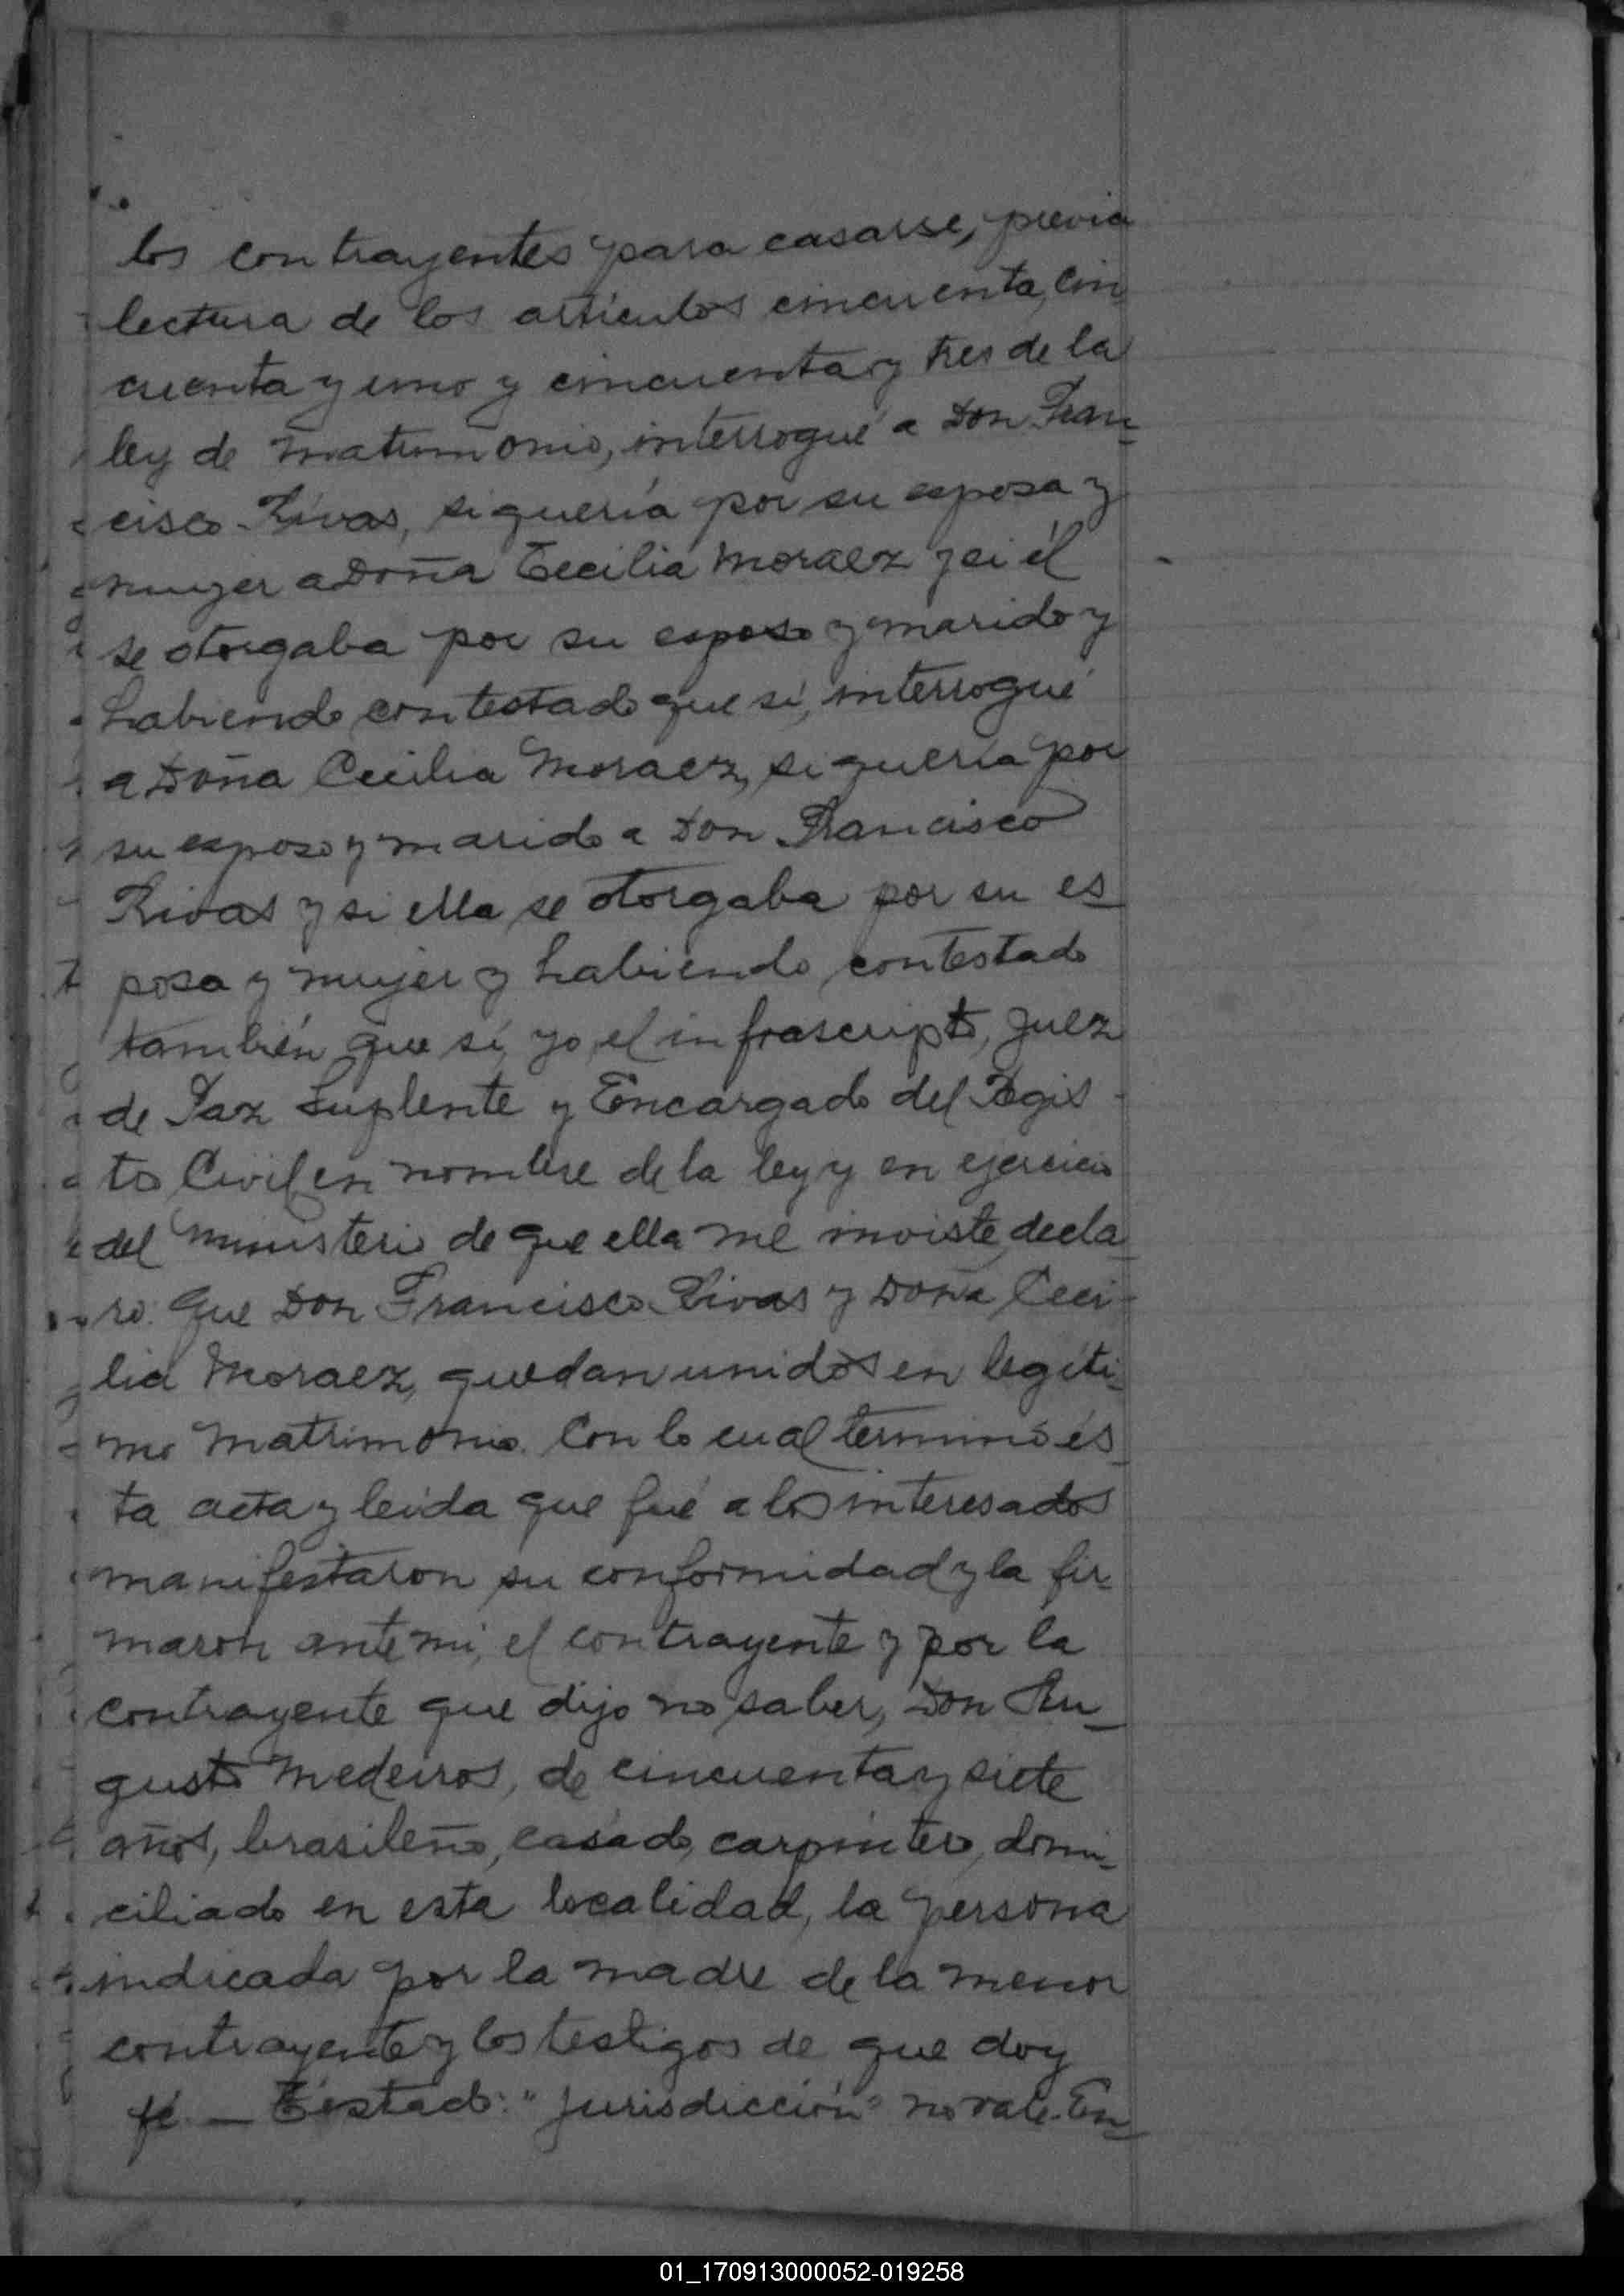 los contrayentes para casarse, previa
lectura de los artículos cincuenta, cin
cuenta y uno y cincuenta y tres de la
ley de matrimonio, interrogué a Don Fran_
cisco Rivas, si quería por su esposa y
mujer a Doña Cecilia Moraez y si él
se otorgaba por su esposo y marido y
habiendo contestado que sí, interrogué
a Doña Cecilia Moraez, si quería por
su esposo y marido a Don Francisco
Rivas y si ella se otorgaba por su es_
posa y mujer y habiendo contestado
también que sí, yo, el infrascripto, Juez
de Paz Suplente y Encargado del Regis-
tro Civil en nombre de la ley y en ejercicio
del ministerio de que ella me inviste, decla_
ro: que Don Francisco Rivas y Doña Ceci-
lia Moraez, quedan unidos en legíti_
mo matrimonio. Con lo cual terminó és_
ta acta y leída que fué a los interesados
manifestaron su conformidad y la fir_
maron ante mí, el contrayente y por la
contrayente que dijo no saber, Don Au_
gusto Medeiros, de cincuenta y siete
años, brasileño, casado, carpintero, domi_
ciliado en esta localidad, la persona
indicada por la madre de la menor
contrayente y los testigos de que doy
fé. — Testado: "jurisdicción" no vale. En_
01_170913000052-019258